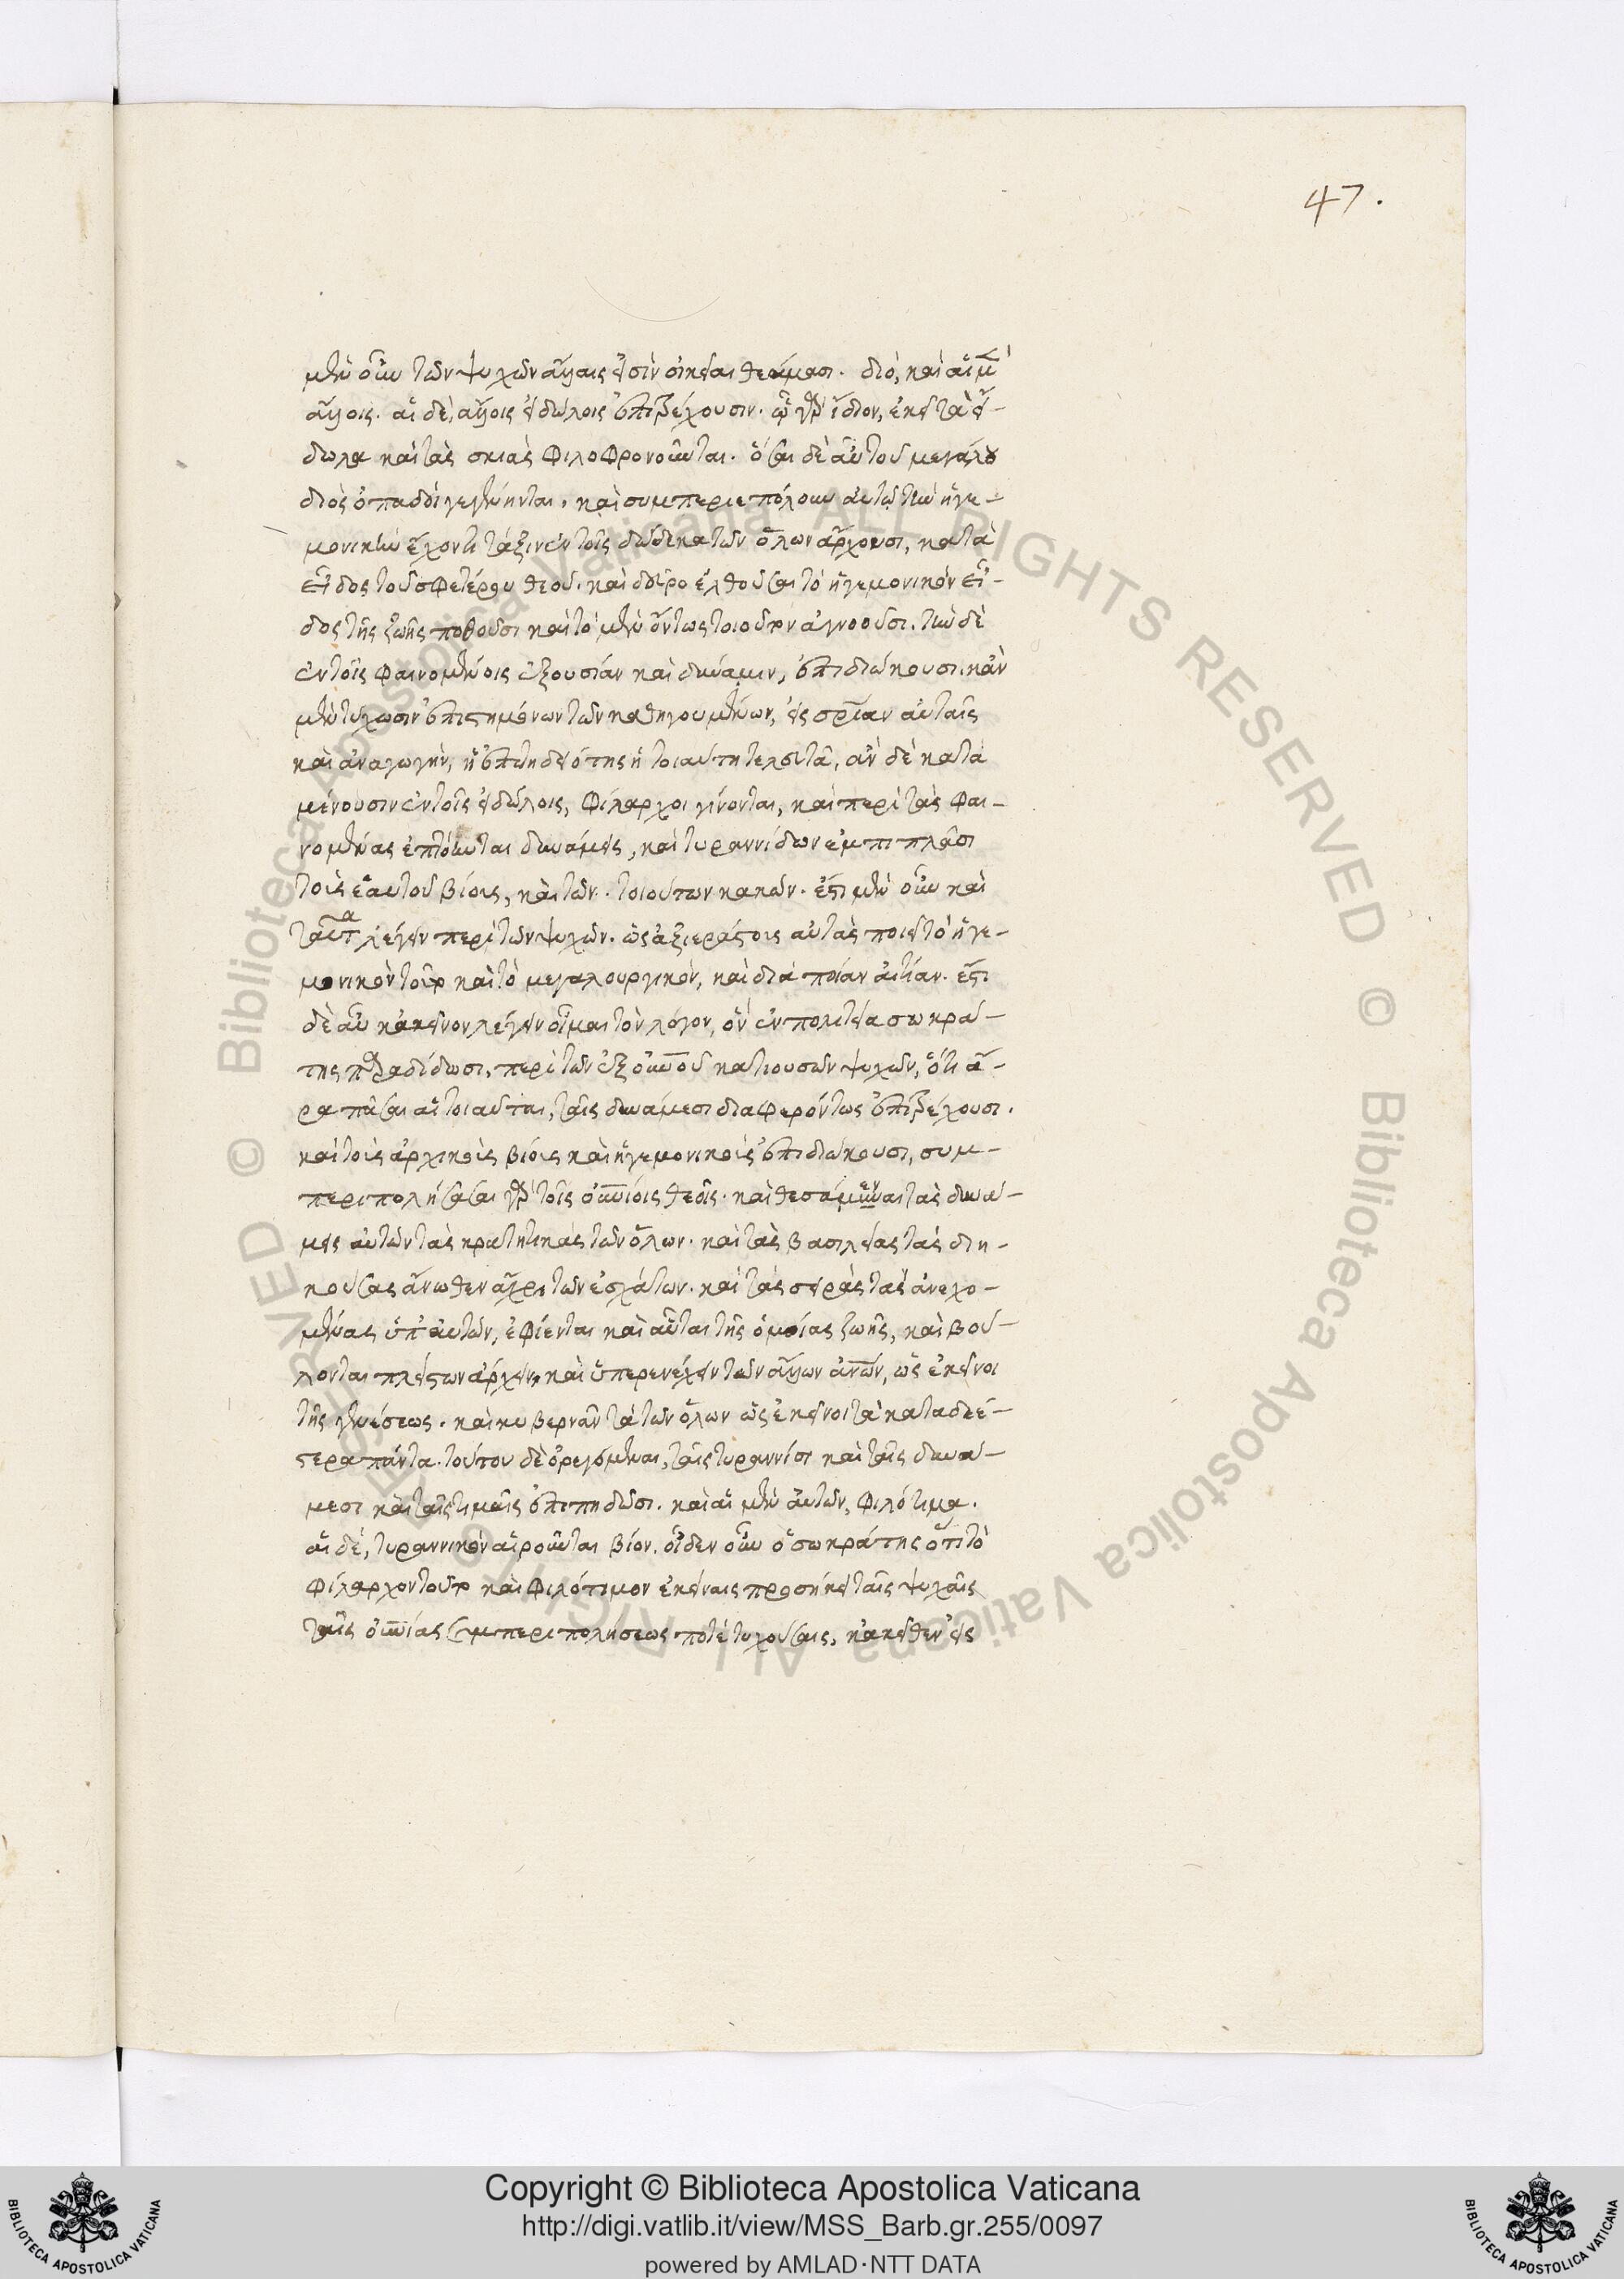 47.
μὲν οὖν τῶν ψυχῶν ἄλλαις εἰσὶν οἰκεῖαι θεάμασι. διὸ, καὶ αἱ μὲν
ἄλλοις. αἱ δὲ, ἄλλοις εἰδώλοις ἐπιτρέχουσιν. ὧ γὰρ ἴδιον, ἐκεῖ τὰ εἴ-
δωλα καὶ τὰς σκιὰς φιλοφρονοῦνται. ὅσαι δὲ αὖ τοῦ μεγάλου
διὸς ὀπαδοὶ γεγένηνται, καὶ συμπεριεπόλουν αὐτῷ τὴν ἡγε-
μονικὴν ἔχοντι τάξιν ἐν τοῖς δώδεκα τῶν ὅλων ἄρχουσι, κατὰ
εἶδος τοῦ σφετέρου θεοῦ. καὶ δεῦρο ἐλθοῦσαι τὸ ἡγεμονικὸν εἶ-
δος τῆς ζωῆς ποθοῦσι καὶ τὸ μὲν ὄντως τοιοῦτον ἀγνοοῦσι. τὴν δὲ
ἐν τοῖς φαινομένοις ἐξουσίαν καὶ δύναμιν, ἐπιδιώκουσι. κἂν
μὲν τύχωσιν ἐπιστημόνων τῶν καθηγουμένων, εἰς σωτηρίαν αὐταῖς
καὶ ἀναγωγὴν, ἡ ἐπιτηδειότης ἡ τοιαύτη τελευτᾷ, ἂν δὲ κατα
μένουσιν ἐν τοῖς εἰδώλοις, φίλαρχοι γίνονται, καὶ περὶ τὰς φαι-
νομένας ἐπτόηνται δυνάμεις, καὶ τυραννίδων ἐμπιπλᾶσι
τοὺς ἑαυτοῦ βίους, καὶ τῶν. τοιούτων κακῶν. ἔστι μὲν οὖν καὶ
ταῦτα λέγειν περὶ τῶν ψυχῶν. ὡς ἀξιεράστους αὐτὰς ποιεῖ τὸ ἡγε-
μονικὸν τοῦτο καὶ τὸ μεγαλουργικὸν, καὶ διὰ ποίαν αἰτίαν. ἔστι
δὲ αὖ κἀκεῖνον λέγειν οἶμαι τὸν λόγον, ὃν ἐν πολιτεία σωκρά-
της παραδίδωσι, περὶ τῶν ἐξ οὐρανοῦ κατιουσῶν ψυχῶν, ὅτι ἄ-
ρα πᾶσαι αἱ τοιαῦται, ταῖς δυνάμεσι διαφερόντως ἐπιτρέχουσι.
καὶ τοὺς ἀρχικοὺς βίους καὶ ἡγεμονικοὺς ἐπιδιώκουσι, συμ-
περιπολήσασαι γὰρ τοῖς οὐρανίοις θεοῖς. καὶ θεασάμεναι τὰς δυνά-
μεις αὐτῶν τὰς κρατητικὰς τῶν ὅλων. καὶ τὰς βασιλείας τὰς διη-
κούσας ἄνωθεν ἄχρι τῶν ἐσχάτων. καὶ τὰς σειρὰς τὰς ἀνεχο-
μένας ὑπ' αὐτῶν, ἐφίενται καὶ αὗται τῆς ὁμοίας ζωῆς, καὶ βού-
λονται πλείστων ἄρχειν, καὶ ὑπερενέχειν τῶν ἄλλων ἀνῶν, ὡς ἐκεῖνοι
τῆς γενέσεως. καὶ κυβερνᾶν τὰ τῶν ὅλων ὡς ἐκεῖνοι τὰ καταδεέ-
στερα πάντα. τούτου δὲ ὀρεγόμεναι, ταῖς τυραννίσι καὶ ταῖς δυνά-
μεσι καὶ ταῖς τιμαῖς ἐπιπηδῶσι. καὶ αἱ μὲν αὐτῶν, φιλότιμα.
αἱ δὲ, τυραννικὸν αἱροῦνται βίον. οἶδεν οὖν ὁ σωκράτης ὅτι τὸ
φίλαρχον τοῦτο καὶ φιλότιμον ἐκείναις προσήκει ταῖς ψυχαῖς
ταῖς οὐρανίας συμπεριπολήσεως ποτὲ τυχούσαις, κἀκεῖθεν εἰς
Copyright © Biblioteca Apostolica Vaticana
http://digi.vatlib.it/view/MSS_Barb.gr.255/0097
powered by AMLAD·NTT DATA
BIBLIOTECA APOSTOLICA VATICANA
BIBLIOTECA APOSTOLICA VATICANA
Biblioteca Apostolica Vaticana ALL RIGHTS RESERVED © Biblioteca Apostolica Vaticana ALL RIGHTS RESERVED ©